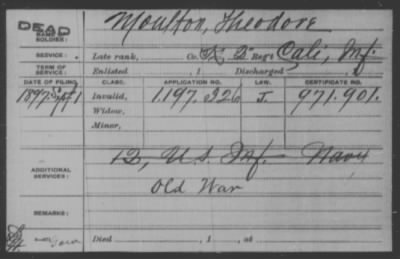 DEAD
NAME OF SOLDIER: Moulton, Theodore
SERVICE: Late rank, Co. K, 2 Reg't Cali, Inf.
TERM OF SERVICE: Enlisted , 1 Discharged , 1
DATE OF FILING. CLASS. APPLICATION NO. LAW. CERTIFICATE NO.
1897 Sept 1 Invalid, 1.197.326 J. 971.901.
Widow,
Minor,
ADDITIONAL SERVICES: 12, U.S. Inf. Navy
Old War
REMARKS:
Died , 1 , at